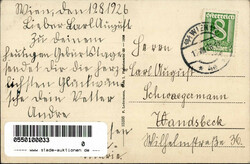 Wien, 12 8 1926
Lieber Carl August
Zu deinem
heutigen Geburtstage
sendet dir die herz
lichsten Glückwün
sche dein Vetter
Andre
Carl August
Schwagermann
Wandsbeck
Wilhelmstraße
WIEN
0550100033
0
www.slade-auktionen.de